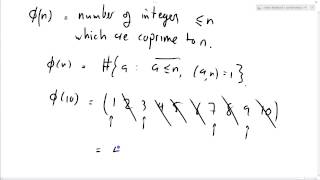 φ(n) = number of integer ≤n
which are coprime to n.
φ(n) = #{a : a≤n, (a,n)=1}
φ(10) = (1 2 3 4 5 6 7 8 9 10)
=